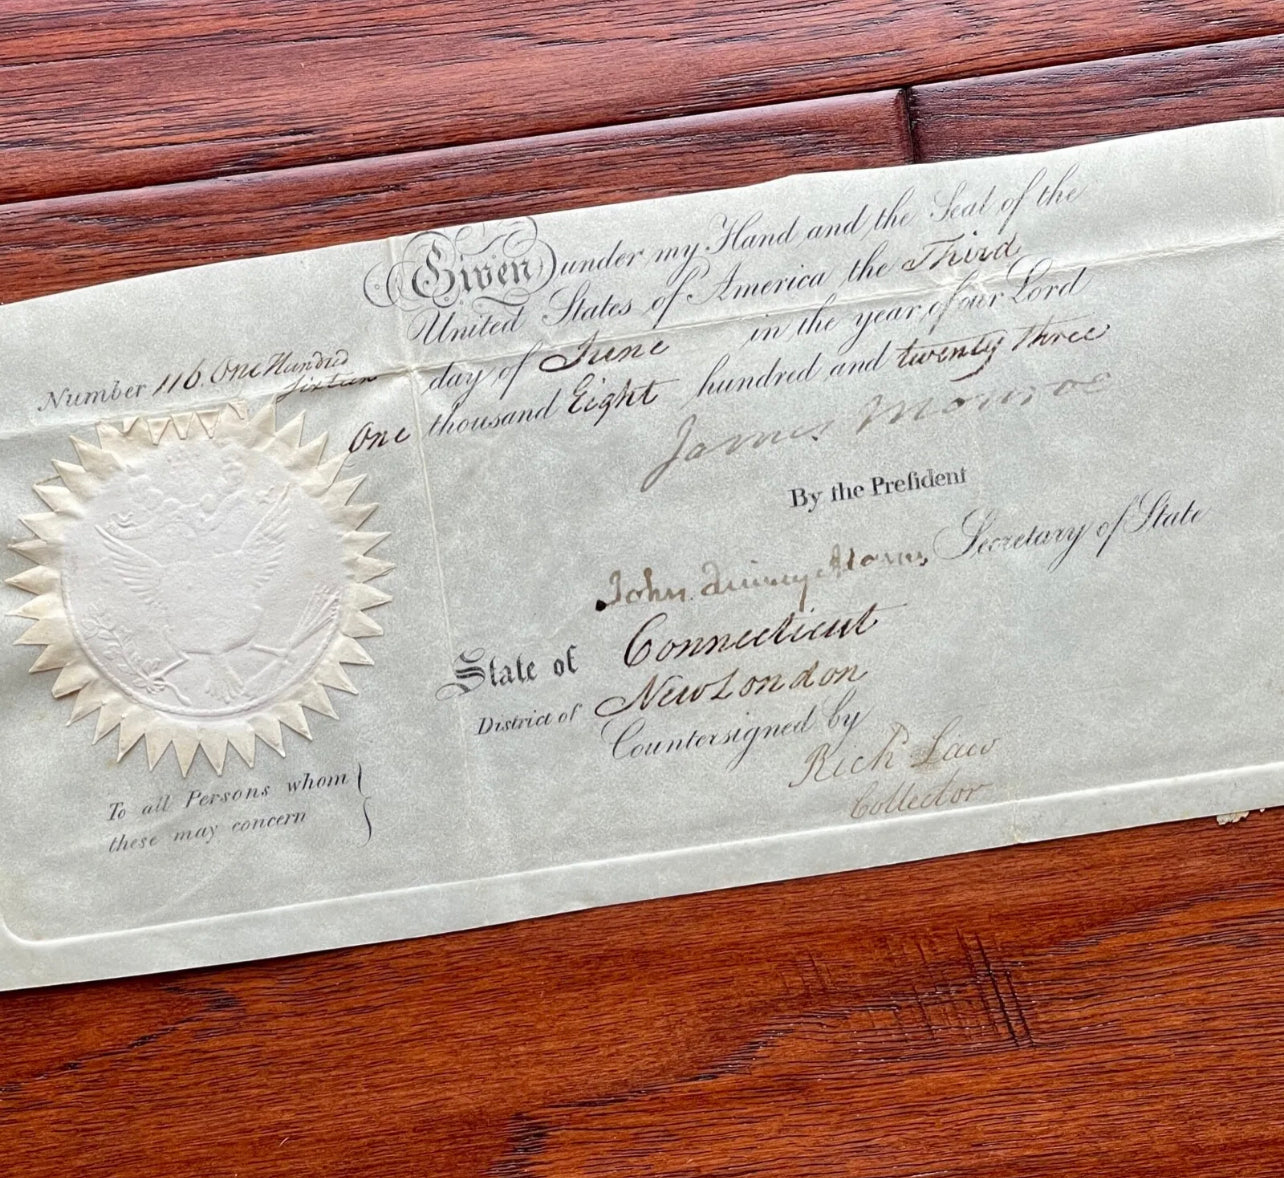 Given under my Hand and the Seal of the
United States of America the Third
day of June in the year of our Lord
One thousand Eight hundred and twenty three
Number 116. One Hundred
Sixteen
James Monroe
By the Preſident
John Quincy Adams, Secretary of State
State of Connecticut
District of New London
Countersigned by
Rich Law
Collector
To all Persons whom
these may concern